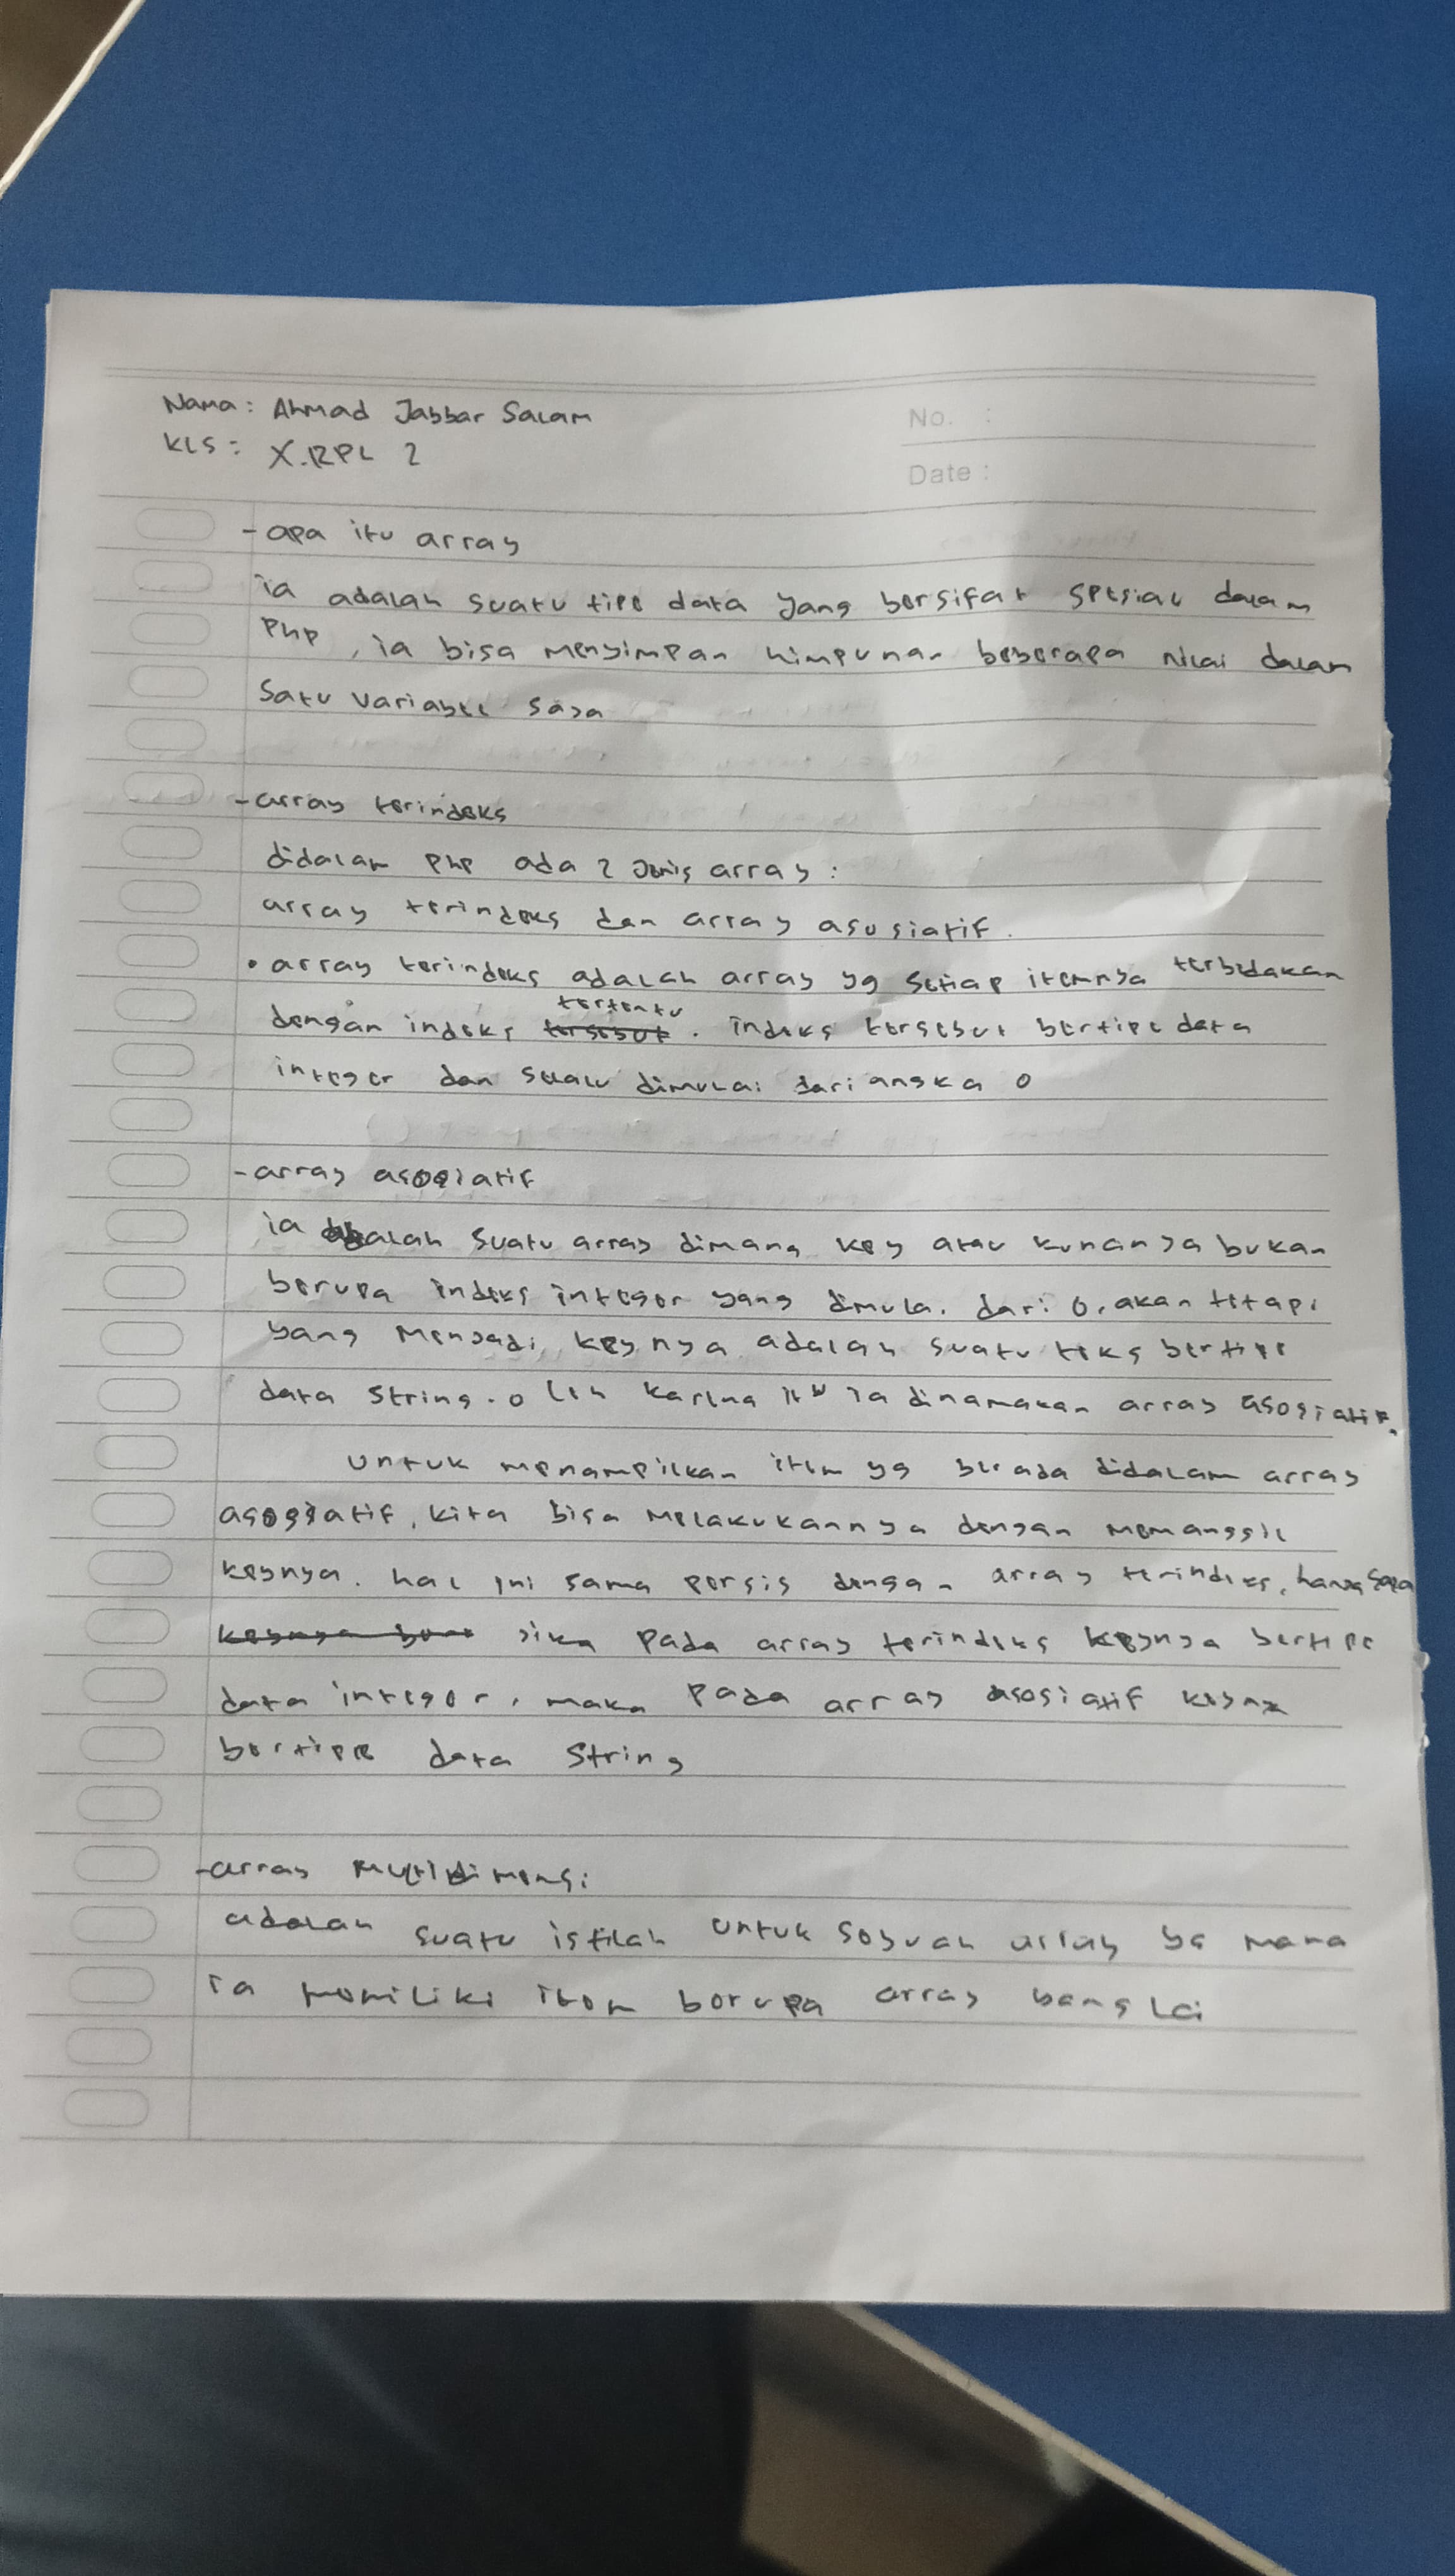 Nama : Ahmad Jabbar Salam
Kls : X.RPL 2
No. :
Date :
- apa itu array
ia adalah suatu tipe data yang bersifat spesial dalam
Php, ia bisa menyimpan himpunan beberapa nilai dalam
satu variabel saja
- array terindeks
didalam php ada 2 jenis array :
array terindeks dan array asusiatif.
• array terindeks adalah array yg setiap itemnya terbedakan
dengan indeks tersebut tertentu. indeks tersebut bertipe data
integer dan selalu dimulai dari angka 0
- array asosiatif
ia adalah suatu array dimana key atau kuncinya bukan
berupa indeks integer yang dimulai dari 0, akan tetapi
yang menjadi keynya adalah suatu teks bertipe
data string. oleh karena itu ia dinamakan array asosiatif.
untuk menampilkan item yg berada didalam array
asosiatif, kita bisa melakukannya dengan memanggil
keynya. hal ini sama persis dengan array terindeks, hanya saja
jika pada array terindeks keynya bertipe
data integer, maka pada array asosiatif keynya
bertipe data string
- array multidimensi
adalah suatu istilah untuk sebuah array yg mana
ia memiliki item berupa array